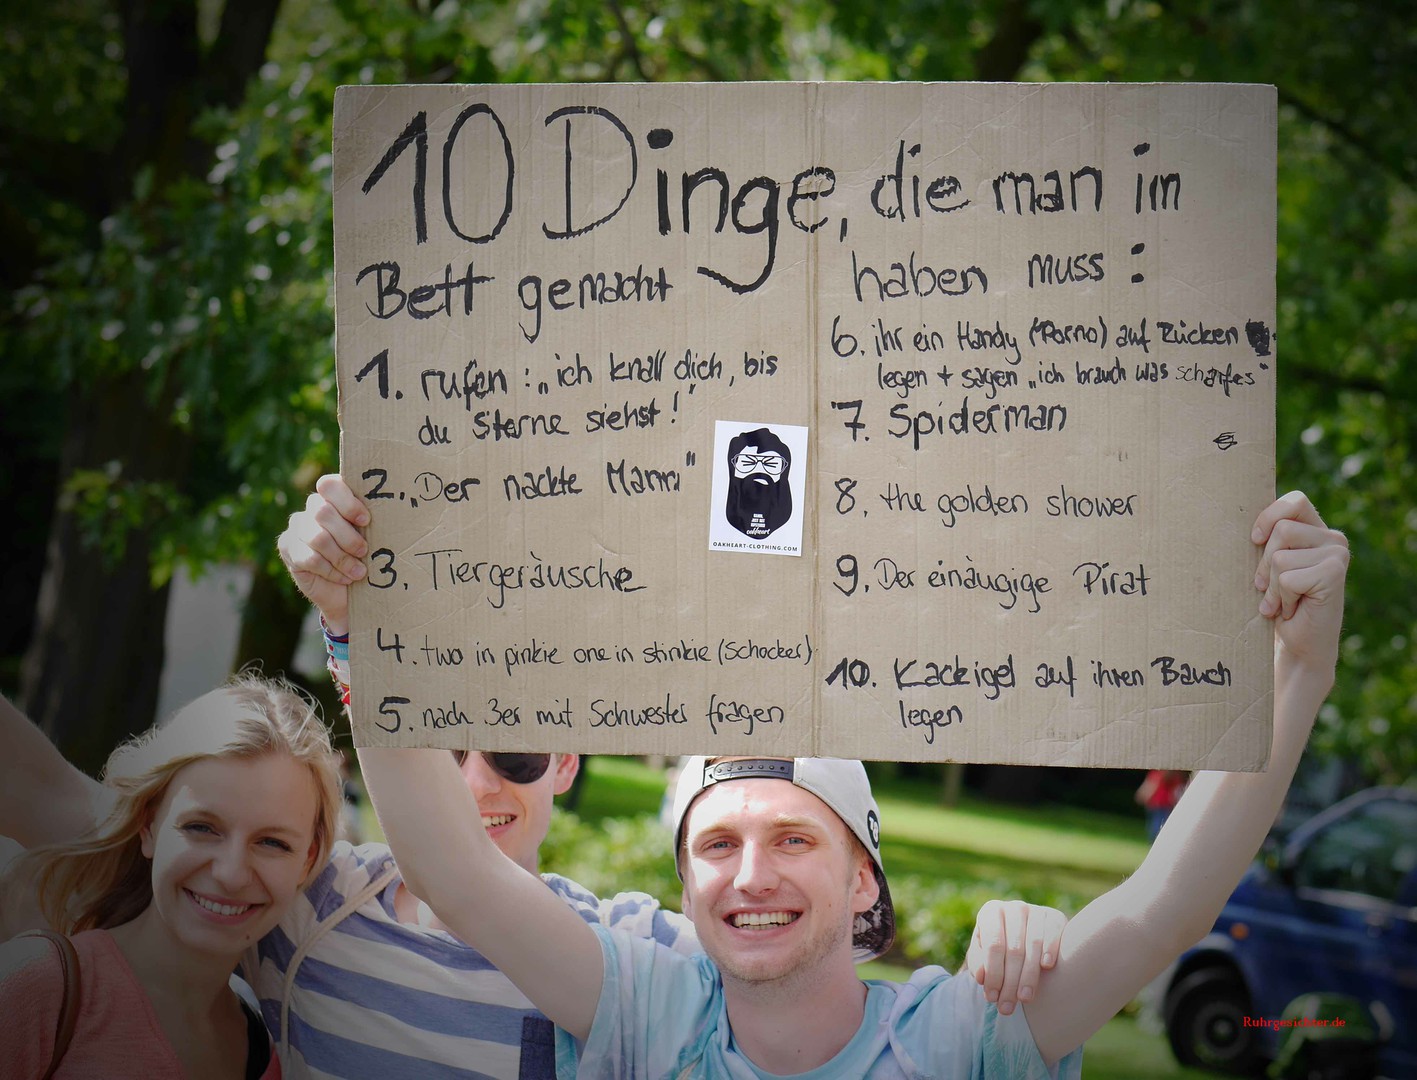 10 Dinge, die man im
Bett gemacht haben muss :
1. rufen : „ich knall dich, bis
du Sterne siehst!"
2. „Der nackte Mann"
3. Tiergeräusche
4. two in pinkie one in stinkie (Schocker)
5. nach 3er mit Schwester fragen
6. ihr ein Handy (Porno) auf Rücken
legen + sagen „ich brauch was scharfes"
7. Spiderman
8. the golden shower
9. Der einäugige Pirat
10. Kackigel auf ihren Bauch
legen
oakheart
OAKHEART-CLOTHING.COM
Ruhrgesichter.de